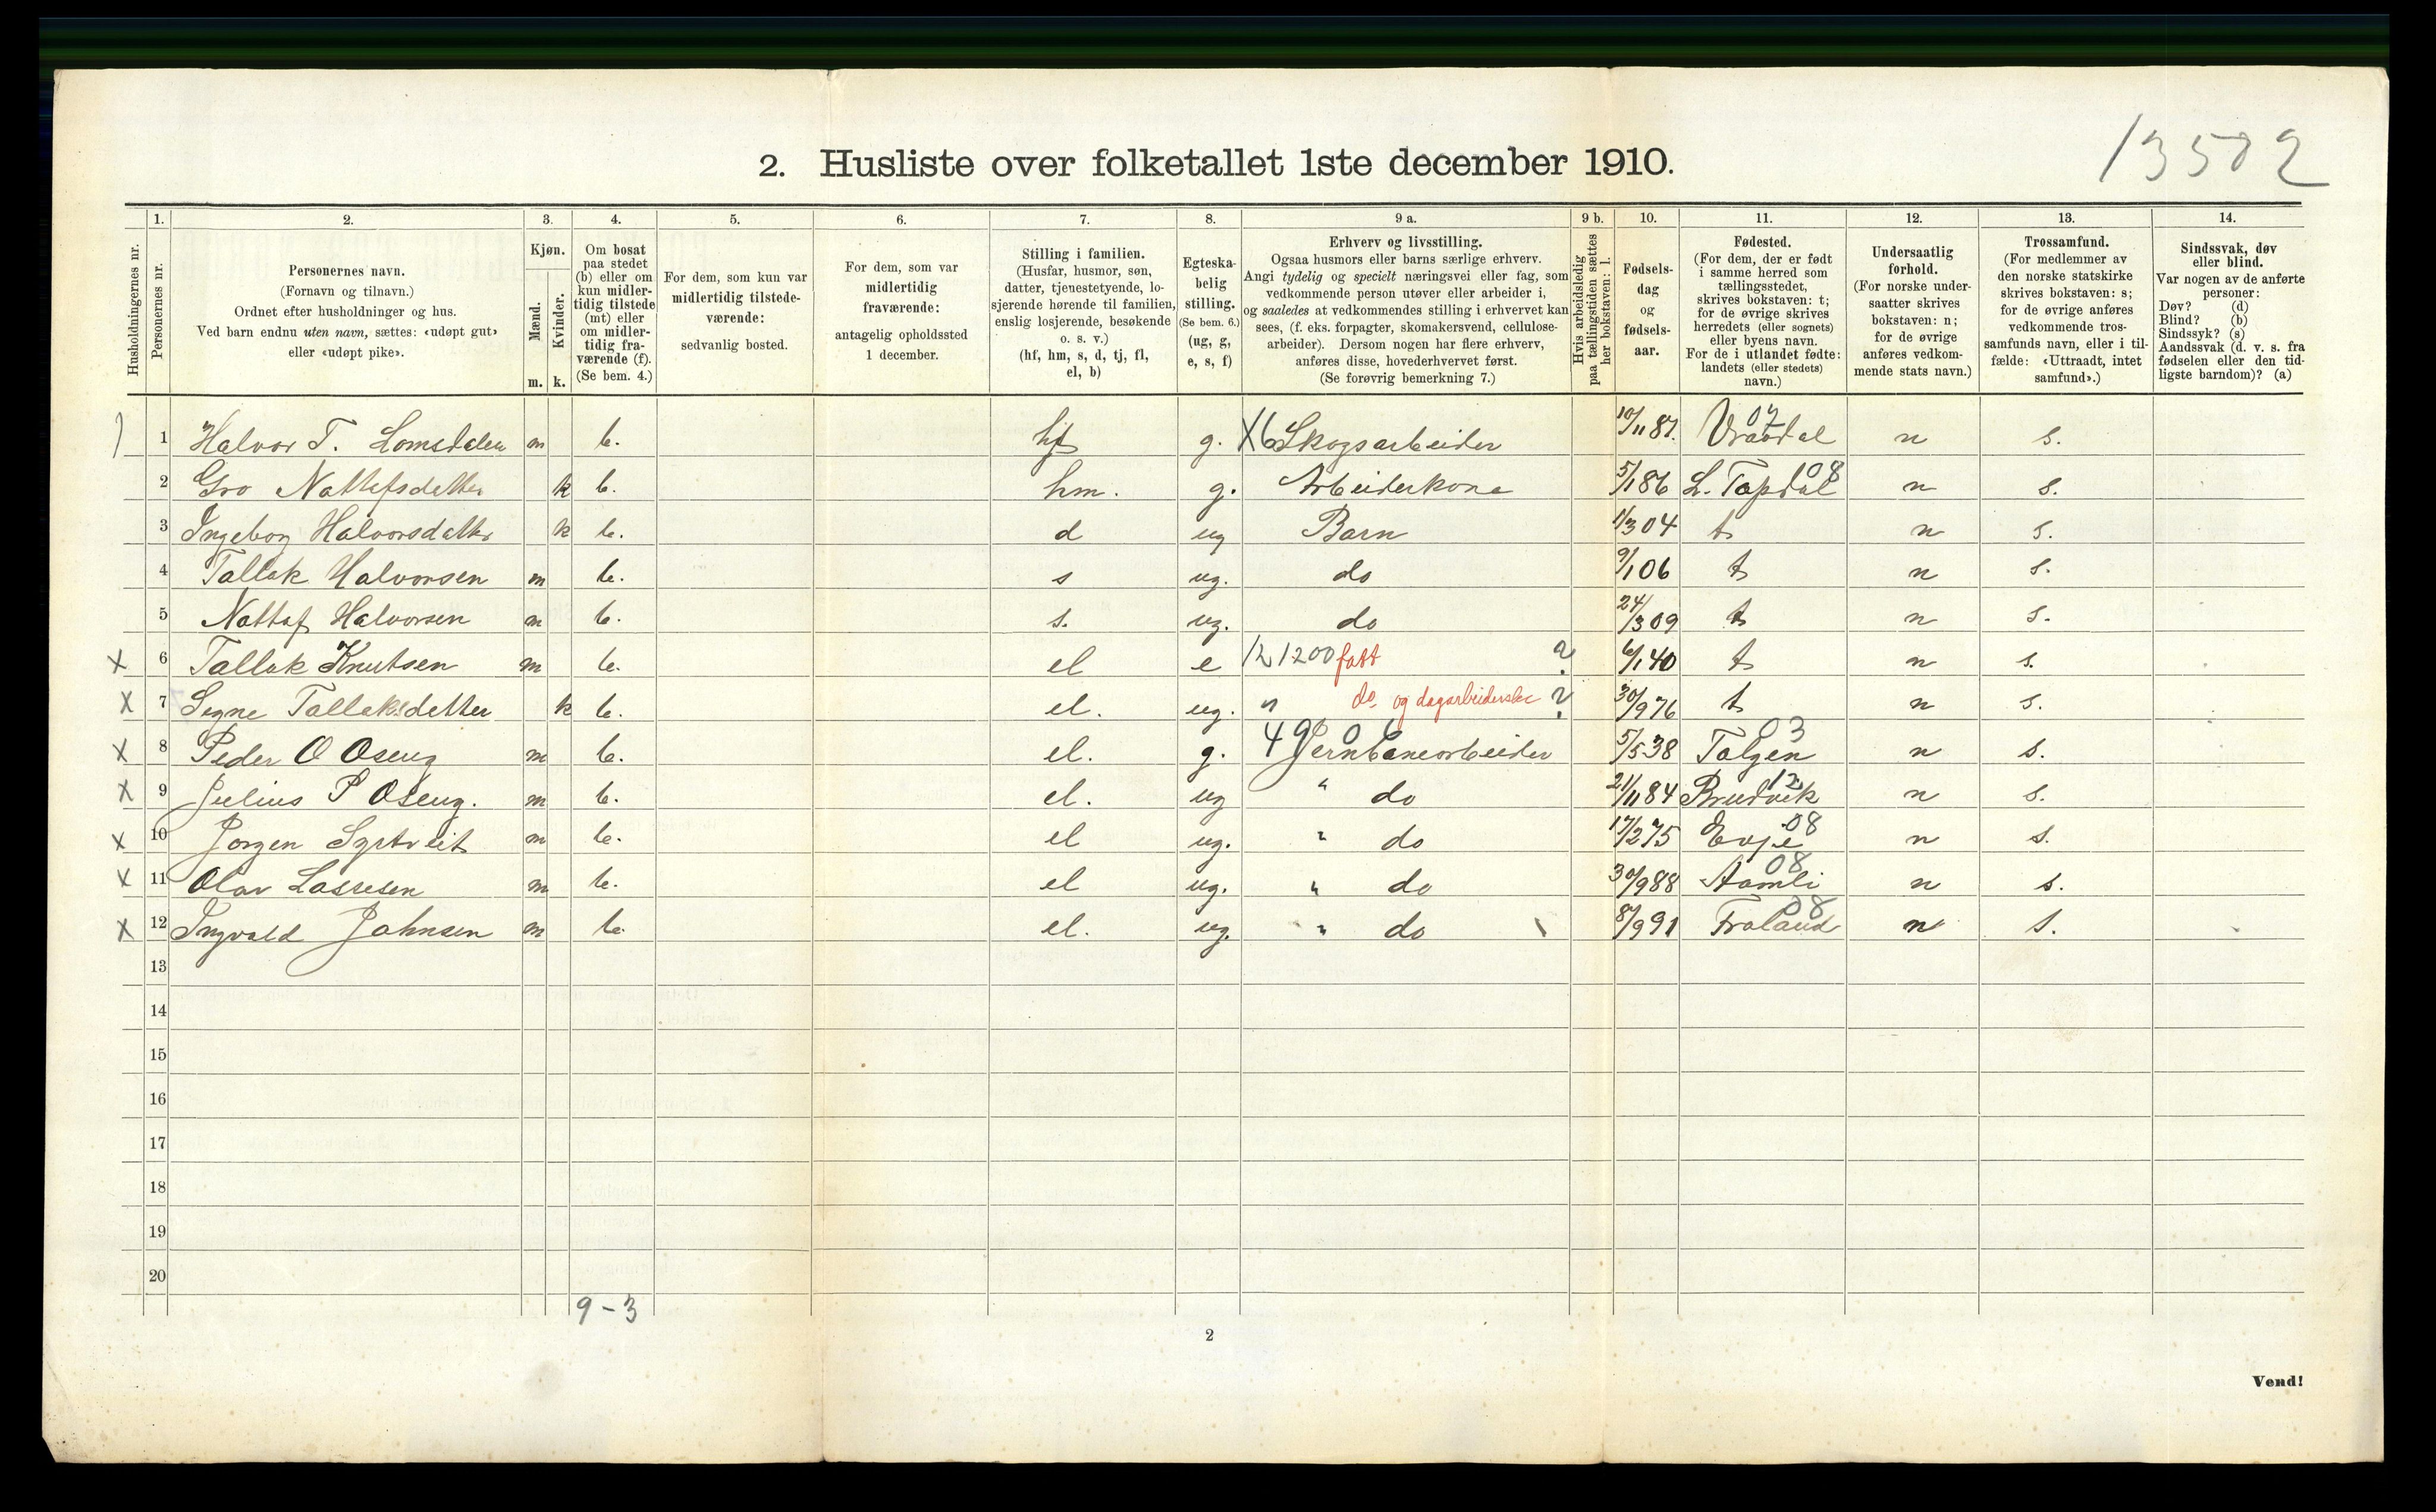 13502
2. Husliste over folketallet 1ste december 1910.
1. 2. 3. 4. 5. 6. 7. 8. 9 a. 9 b. 10. 11. 12. 13. 14.
Husholdningernes nr.
Personernes nr.
Personernes navn.
(Fornavn og tilnavn.)
Ordnet efter husholdninger og hus.
Ved barn endnu uten navn, sættes: «udøpt gut»
eller «udøpt pike».
Kjøn.
Mænd.
Kvinder.
m. k.
Om bosat
paa stedet
(b) eller om
kun midler-
tidig tilstede
(mt) eller
om midler-
tidig fra-
værende (f).
(Se bem. 4.)
For dem, som kun var
midlertidig tilstede-
værende:
sedvanlig bosted.
For dem, som var
midlertidig
fraværende:
antagelig opholdssted
1 december.
Stilling i familien.
(Husfar, husmor, søn,
datter, tjenestetyende, lo-
sjerende hørende til familien,
enslig losjerende, besøkende
o. s. v.)
(hf, hm, s, d, tj, fl,
el, b)
Egteska-
belig
stilling.
(Se bem. 6.)
(ug, g,
e, s, f)
Erhverv og livsstilling.
Ogsaa husmors eller barns særlige erhverv.
Angi tydelig og specielt næringsvei eller fag, som
vedkommende person utøver eller arbeider i,
og saaledes at vedkommendes stilling i erhvervet kan
sees, (f. eks. forpagter, skomakersvend, cellulose-
arbeider). Dersom nogen har flere erhverv,
anføres disse, hovederhvervet først.
(Se forøvrig bemerkning 7.)
Hvis arbeidsledig
paa tællingstiden sættes
her bokstaven: l.
Fødsels-
dag
og
fødsels-
aar.
Fødested.
(For dem, der er født
i samme herred som
tællingsstedet,
skrives bokstaven: t;
for de øvrige skrives
herredets (eller sognets)
eller byens navn.
For de i utlandet fødte:
landets (eller stedets)
navn.)
Undersaatlig
forhold.
(For norske under-
saatter skrives
bokstaven: n;
for de øvrige
anføres vedkom-
mende stats navn.)
Trossamfund.
(For medlemmer av
den norske statskirke
skrives bokstaven: s;
for de øvrige anføres
vedkommende tros-
samfunds navn, eller i til-
fælde: «Uttraadt, intet
samfund».)
Sindssvak, døv
eller blind.
Var nogen av de anførte
personer:
Døv? (d)
Blind? (b)
Sindssyk? (s)
Aandssvak (d. v. s. fra
fødselen eller den tid-
ligste barndom)? (a)
1 Halvor T. Lomsdalen m b. hf g. X6 Skogsarbeider 10/11 87. Vraadal 07 n s.
2 Gro Nattefsdatter k b. hm. g. Arbeiderkone 5/1 86 L. Topdal 08 n s.
3 Ingeborg Halvorsdatter k b. d ug Barn 1/3 04 t n s.
4 Tallak Halvorsen m b. s ug. do 9/1 06 t n s.
5 Nattaf Halvorsen m b. s. ug. do 24/3 09 t n s.
X 6 Tallak Knutsen m b. el e 12 1200 fatt ? 6/1 40 t n s.
X 7 Signe Tallaksdatter k b. el. ug. " do. og dagarbeiderske ? 30/9 76 t n s.
X 8 Peder O Oseng m b. el. g. 49 06 Jernbanearbeider 5/5 38 Tolgen 03 n s.
X 9 Julius P Oseng. m b. el. ug " do 21/11 84 Bruvik 12 n s.
X 10 Jorgen Systveit m b. el ug. " do 17/2 75 Evje 08 n s.
X 11 Olav Lassesen m b. el ug. " do 30/9 88 Aamli 08 n s.
X 12 Ingvald Johnsen m b. el. ug. " do \ 8/9 91 Froland 08 n s.
13
14
15
16
17
18
19
20
9-3
2
Vend!